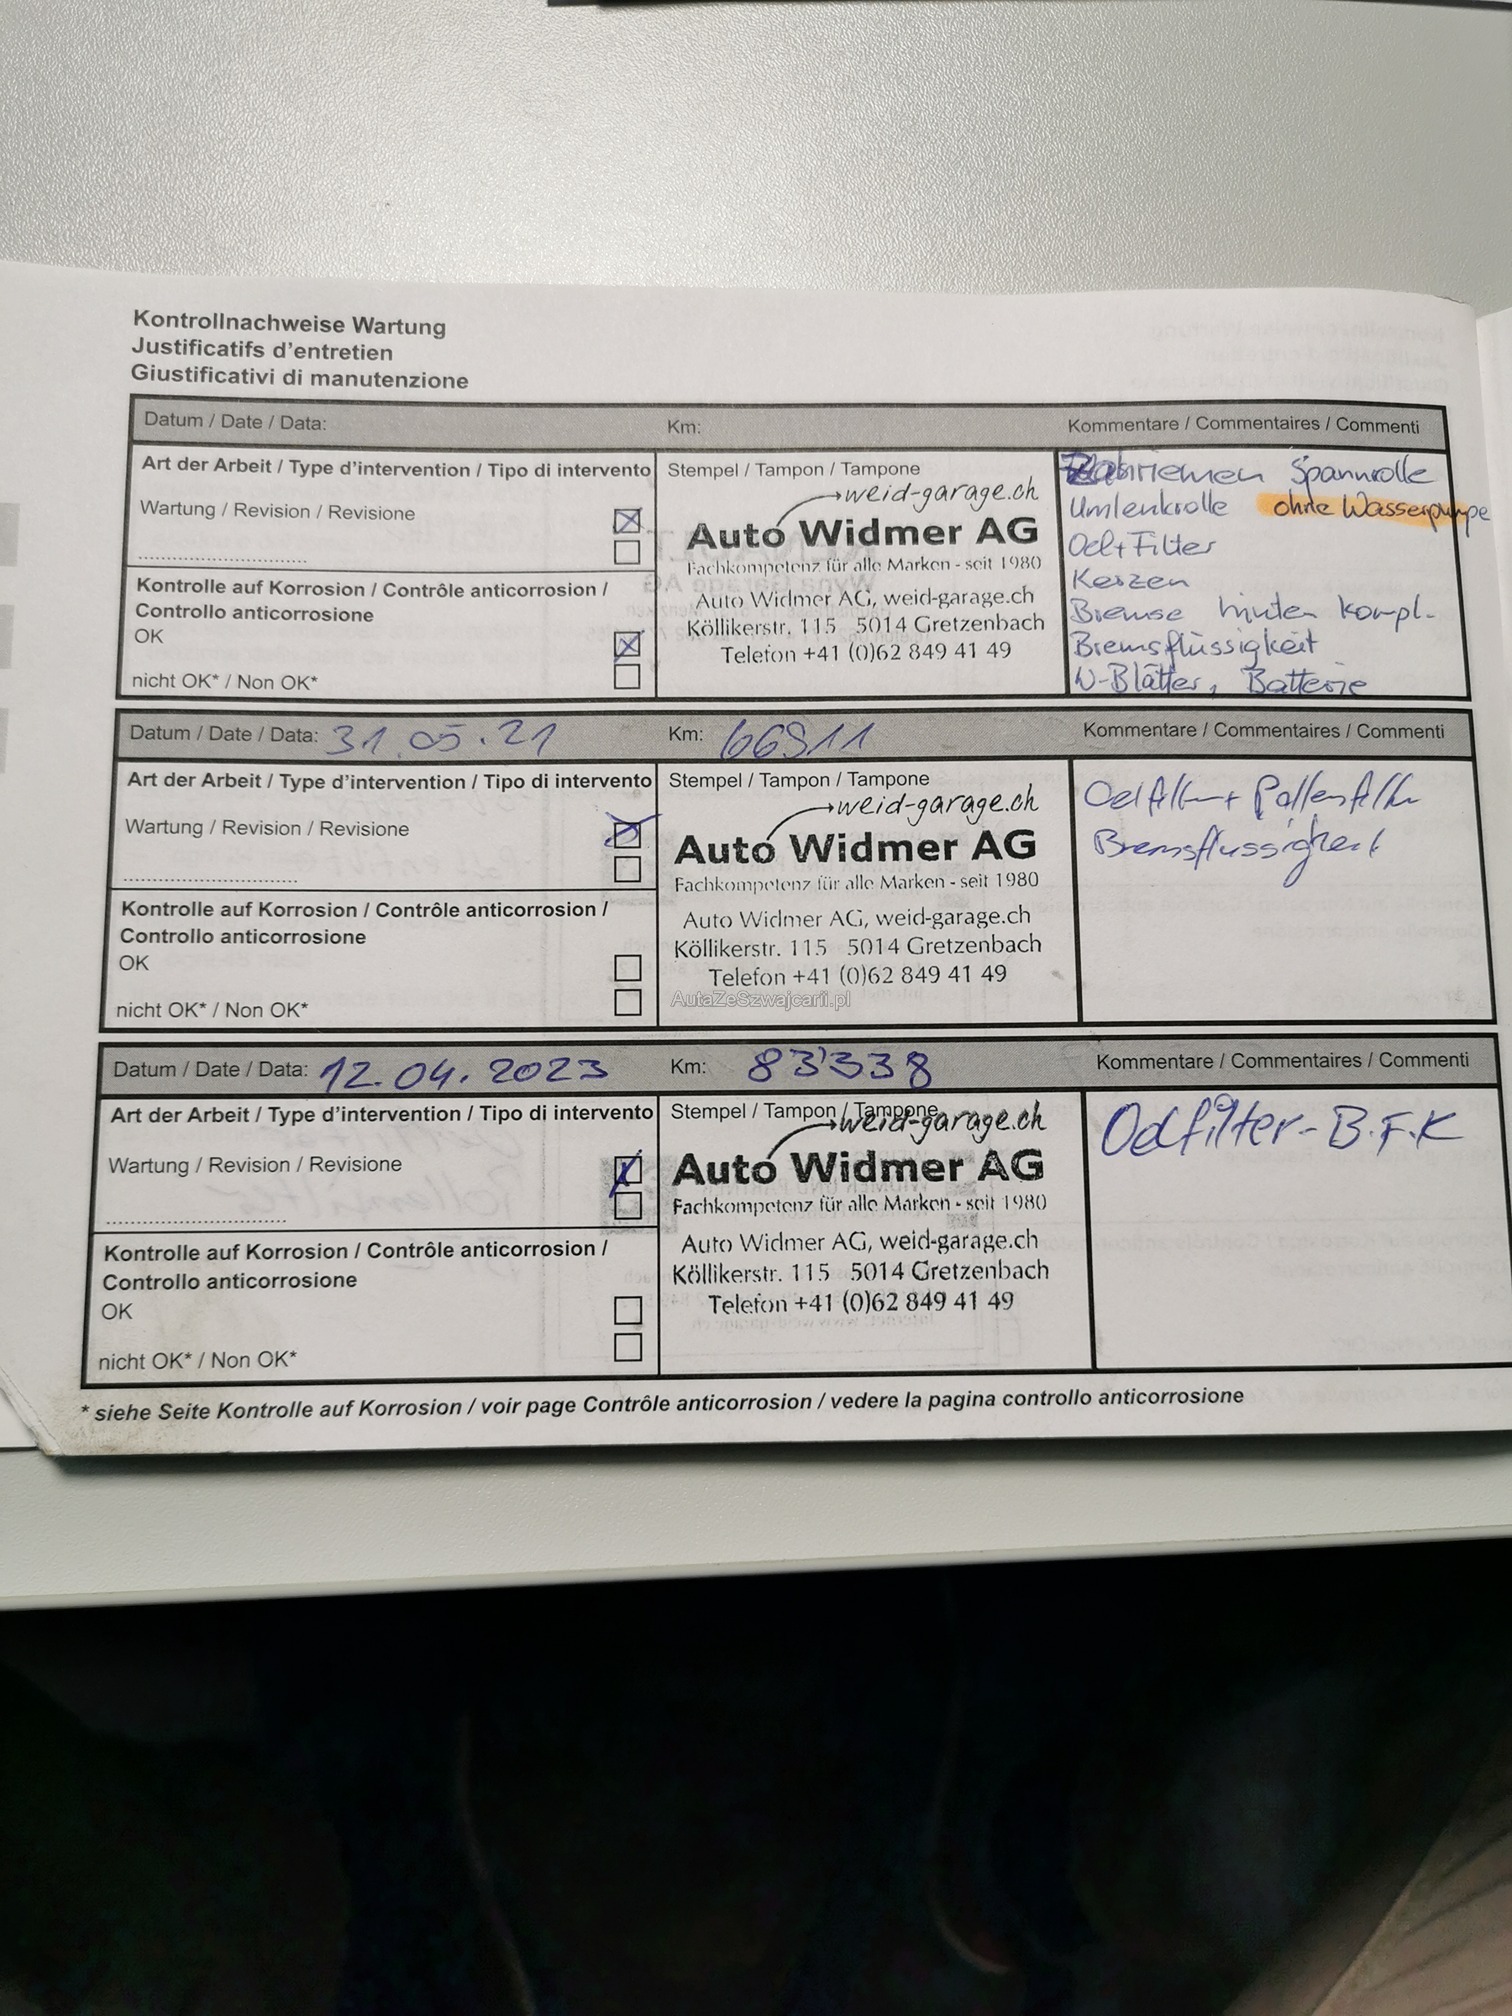 Kontrollnachweise Wartung
Justificatifs d'entretien
Giustificativi di manutenzione
Datum / Date / Data: Km: Kommentare / Commentaires / Commenti
Art der Arbeit / Type d'intervention / Tipo di intervento
Wartung / Revision / Revisione
Kontrolle auf Korrosion / Contrôle anticorrosion /
Controllo anticorrosione
OK
nicht OK* / Non OK*
Stempel / Tampon / Tampone
weid-garage.ch
Auto Widmer AG
Fachkompetenz für alle Marken - seit 1980
Auto Widmer AG, weid-garage.ch
Köllikerstr. 115 5014 Gretzenbach
Telefon +41 (0)62 849 41 49
Spannrolle
Umlenkrolle ohne Wasserpumpe
Oel + Filter
Kerzen
Bremse hinten kompl.
Bremsflüssigkeit
W-Blätter, Batterie
Datum / Date / Data: 31.05.21 Km: 66911 Kommentare / Commentaires / Commenti
Art der Arbeit / Type d'intervention / Tipo di intervento
Wartung / Revision / Revisione
Kontrolle auf Korrosion / Contrôle anticorrosion /
Controllo anticorrosione
OK
nicht OK* / Non OK*
Stempel / Tampon / Tampone
weid-garage.ch
Auto Widmer AG
Fachkompetenz für alle Marken - seit 1980
Auto Widmer AG, weid-garage.ch
Köllikerstr. 115 5014 Gretzenbach
Telefon +41 (0)62 849 41 49
AutaZeSzwajcarii.pl
Oelfilter + Pollenfilter
Bremsflussigkeit
Datum / Date / Data: 12.04.2023 Km: 83'338 Kommentare / Commentaires / Commenti
Art der Arbeit / Type d'intervention / Tipo di intervento
Wartung / Revision / Revisione
Kontrolle auf Korrosion / Contrôle anticorrosion /
Controllo anticorrosione
OK
nicht OK* / Non OK*
Stempel / Tampon / Tampone
weid-garage.ch
Auto Widmer AG
Fachkompetenz für alle Marken - seit 1980
Auto Widmer AG, weid-garage.ch
Köllikerstr. 115 5014 Gretzenbach
Telefon +41 (0)62 849 41 49
Oelfilter - B.F.K
* siehe Seite Kontrolle auf Korrosion / voir page Contrôle anticorrosion / vedere la pagina controllo anticorrosione